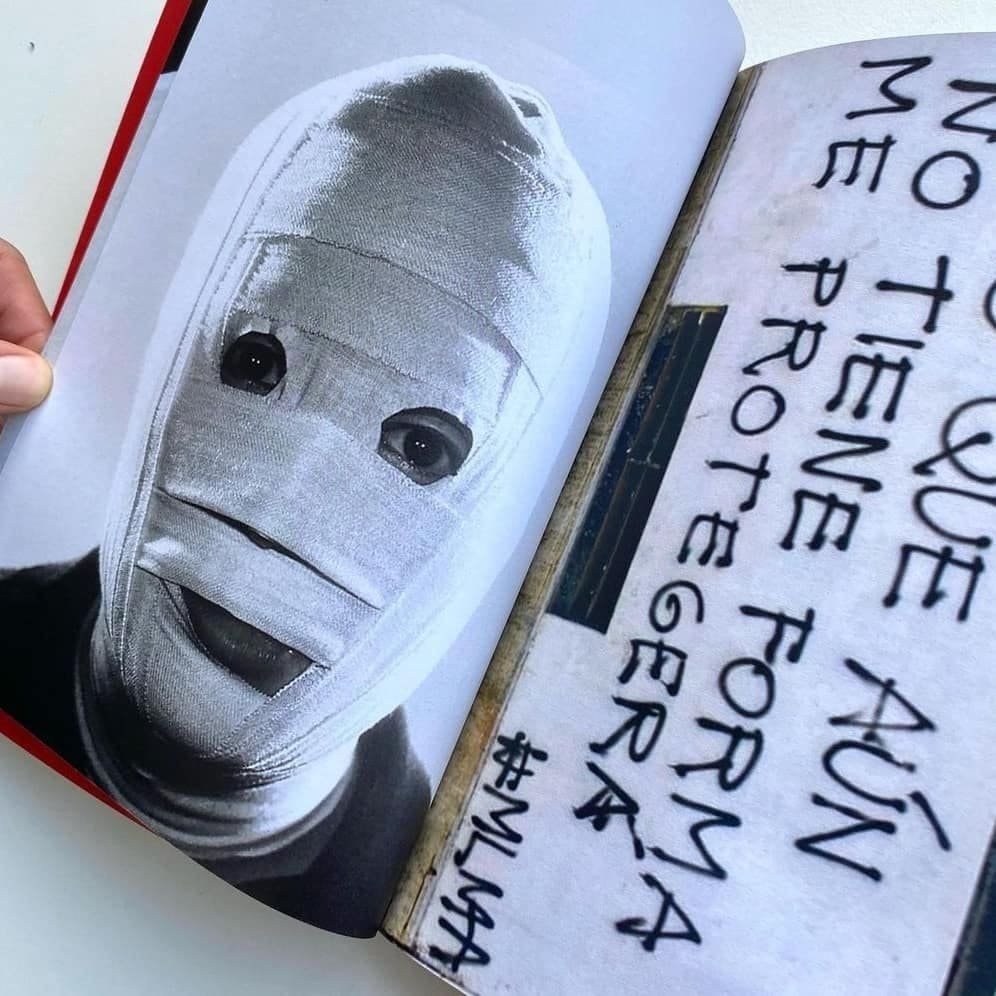 QUE AÚN
NO TIENE FORMA
ME PROTEGERÁ
#MLMAA